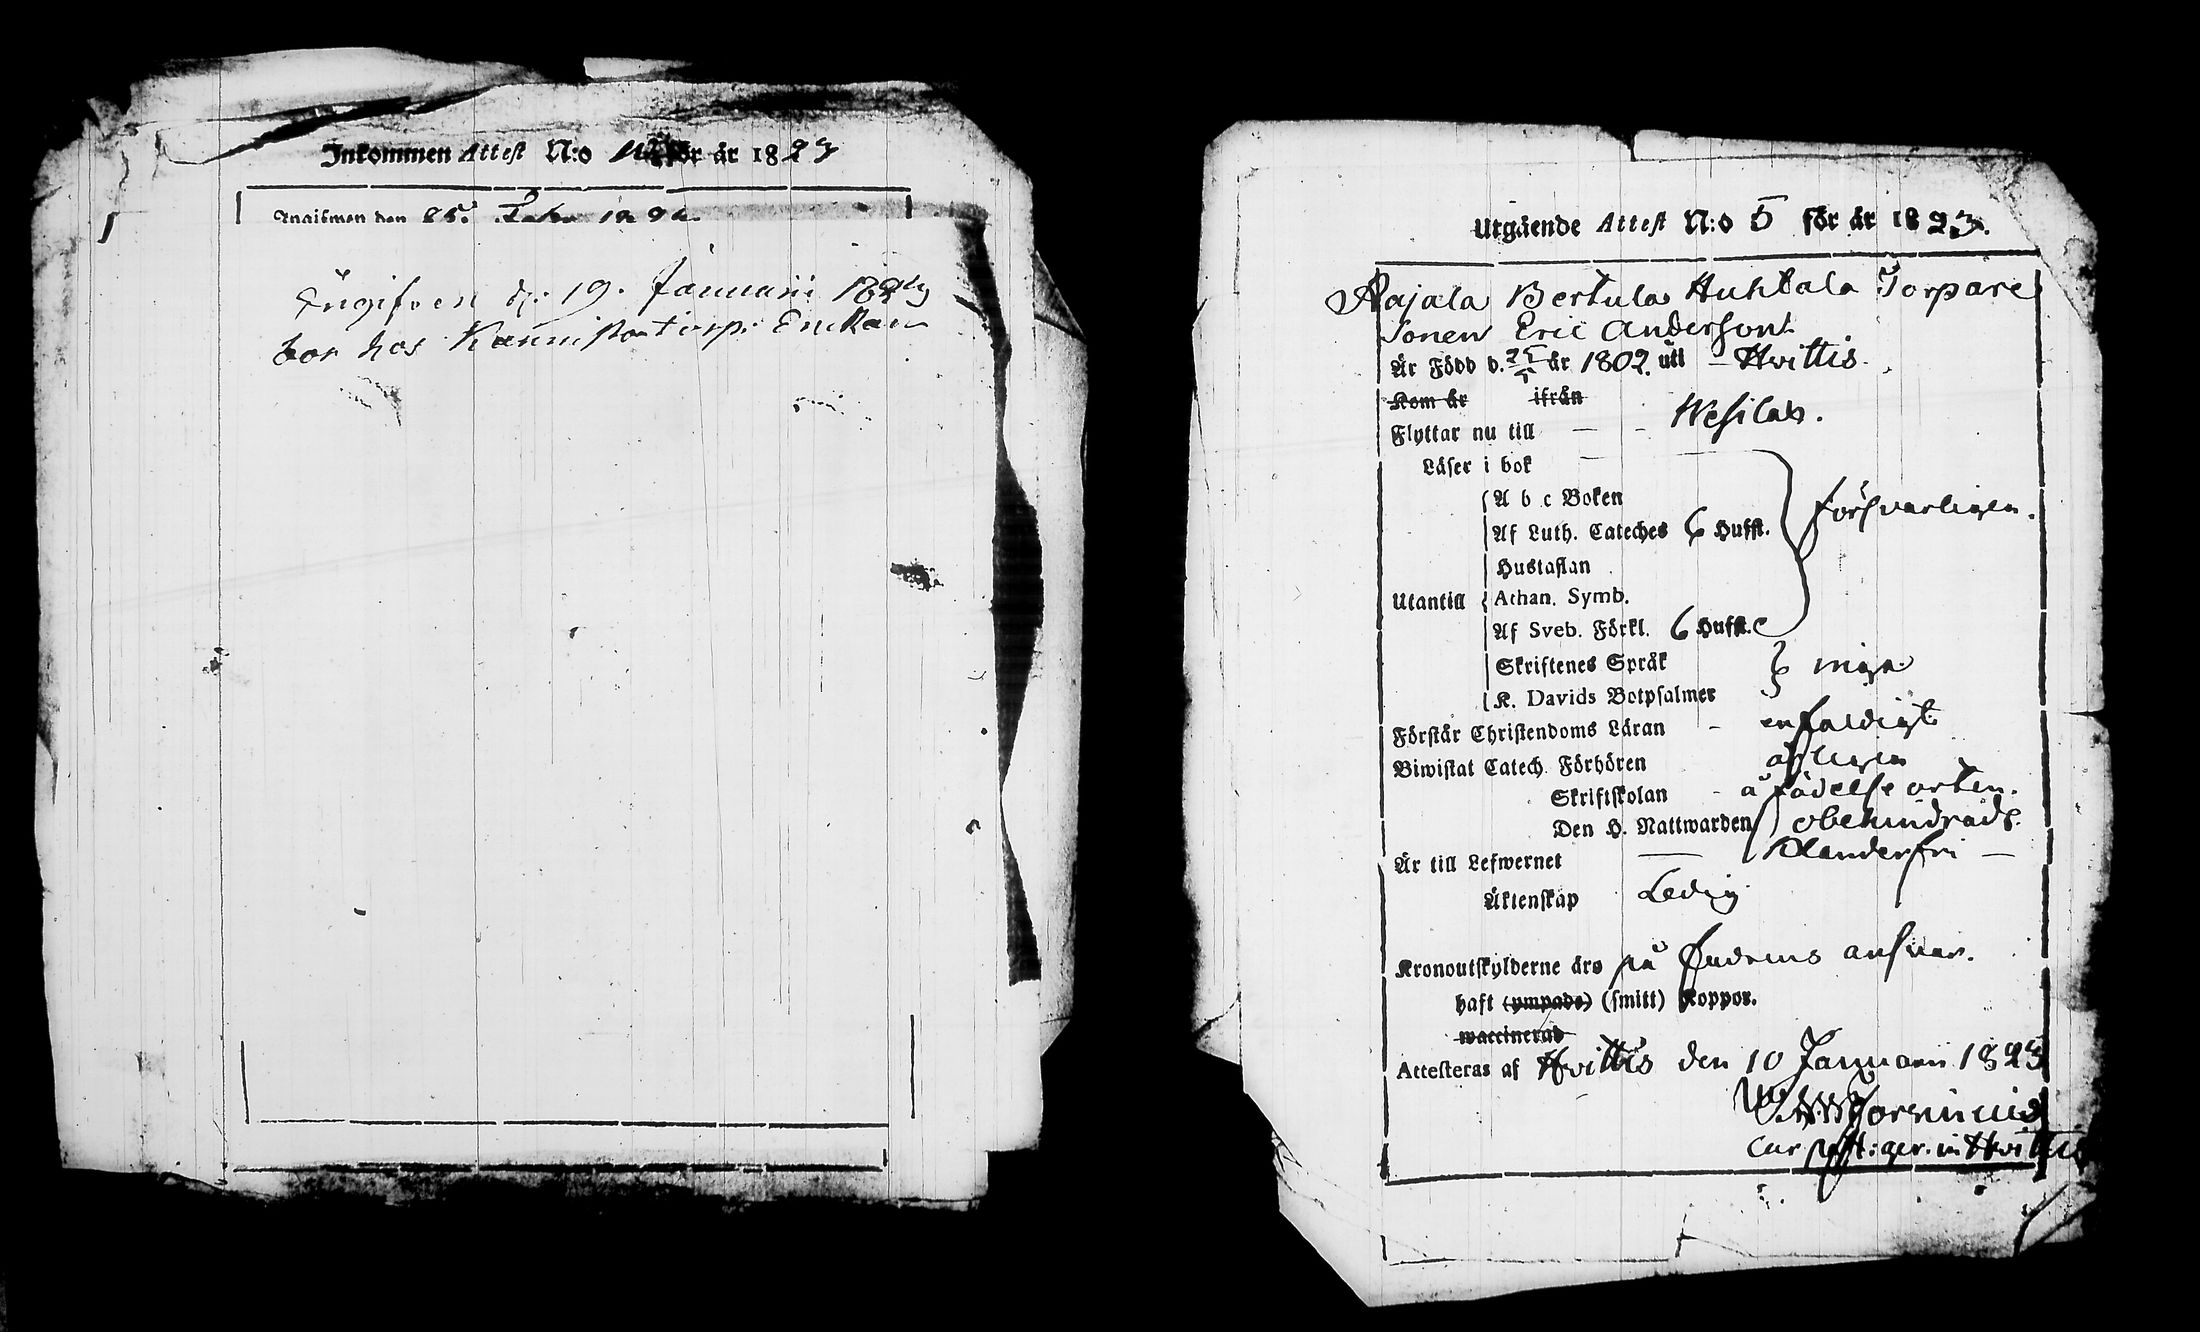 Inkommen Attest N:o för år 1823
Angifwen den 25.
Angifven d: 19. Januarii
bor hos torp:
Utgående Attest N:o 5 för år 1823.
Rajala Bertula Huhtala Torpare
Sonen Eric Andersson
Är Född d. 25/5 år 1802. uti – Hvittis.
Kom år ifrån
Flyttar nu till — - Wesilax.
Läser i bok
A b c Boken
försvarligen.
Af Luth. Cateches 6 Hufst.
Hustaflan
Utantill Athan. Symb.
Af Sveb. Förkl. 6 Hufst.
Skriftenes Språk inga
K. Davids Botpsalmer
Förstår Christendoms Läran - enfaldigt
Biwistat Catech. Förhören årligen
Skriftskolan - å födelse orten.
Den H. Nattwarden obehindradt.
Är till Lefwernet — Klanderfri —
Äktenskap Ledig
Kronoutskylderne äro på Fadrens answar.
haft (ympade) (smitt) Koppor.
waccinerad
Attesteras af Hvittis den 10 Januarii 1823